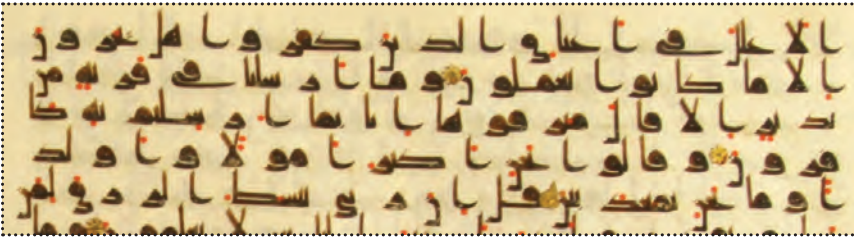 الاغلل في اعناق الذين كفروا هل يجزون
الا ما كانوا يعملون وما ارسلنا في قرية من
نذير الا قال مترفوها انا بما ارسلتم به كـ
فرون وقالوا نحن اكثر امولا واولد
ا وما نحن بمعذبين قل ان ربي يبسط الرزق لمن